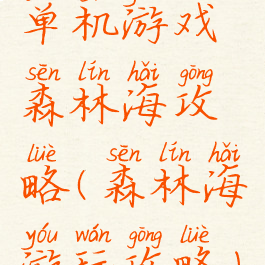 单机游戏
sēn lín hǎi gōng
森林海攻
lüè sēn lín hǎi
略(森林海
yóu wán gōng lüè
游玩攻略)